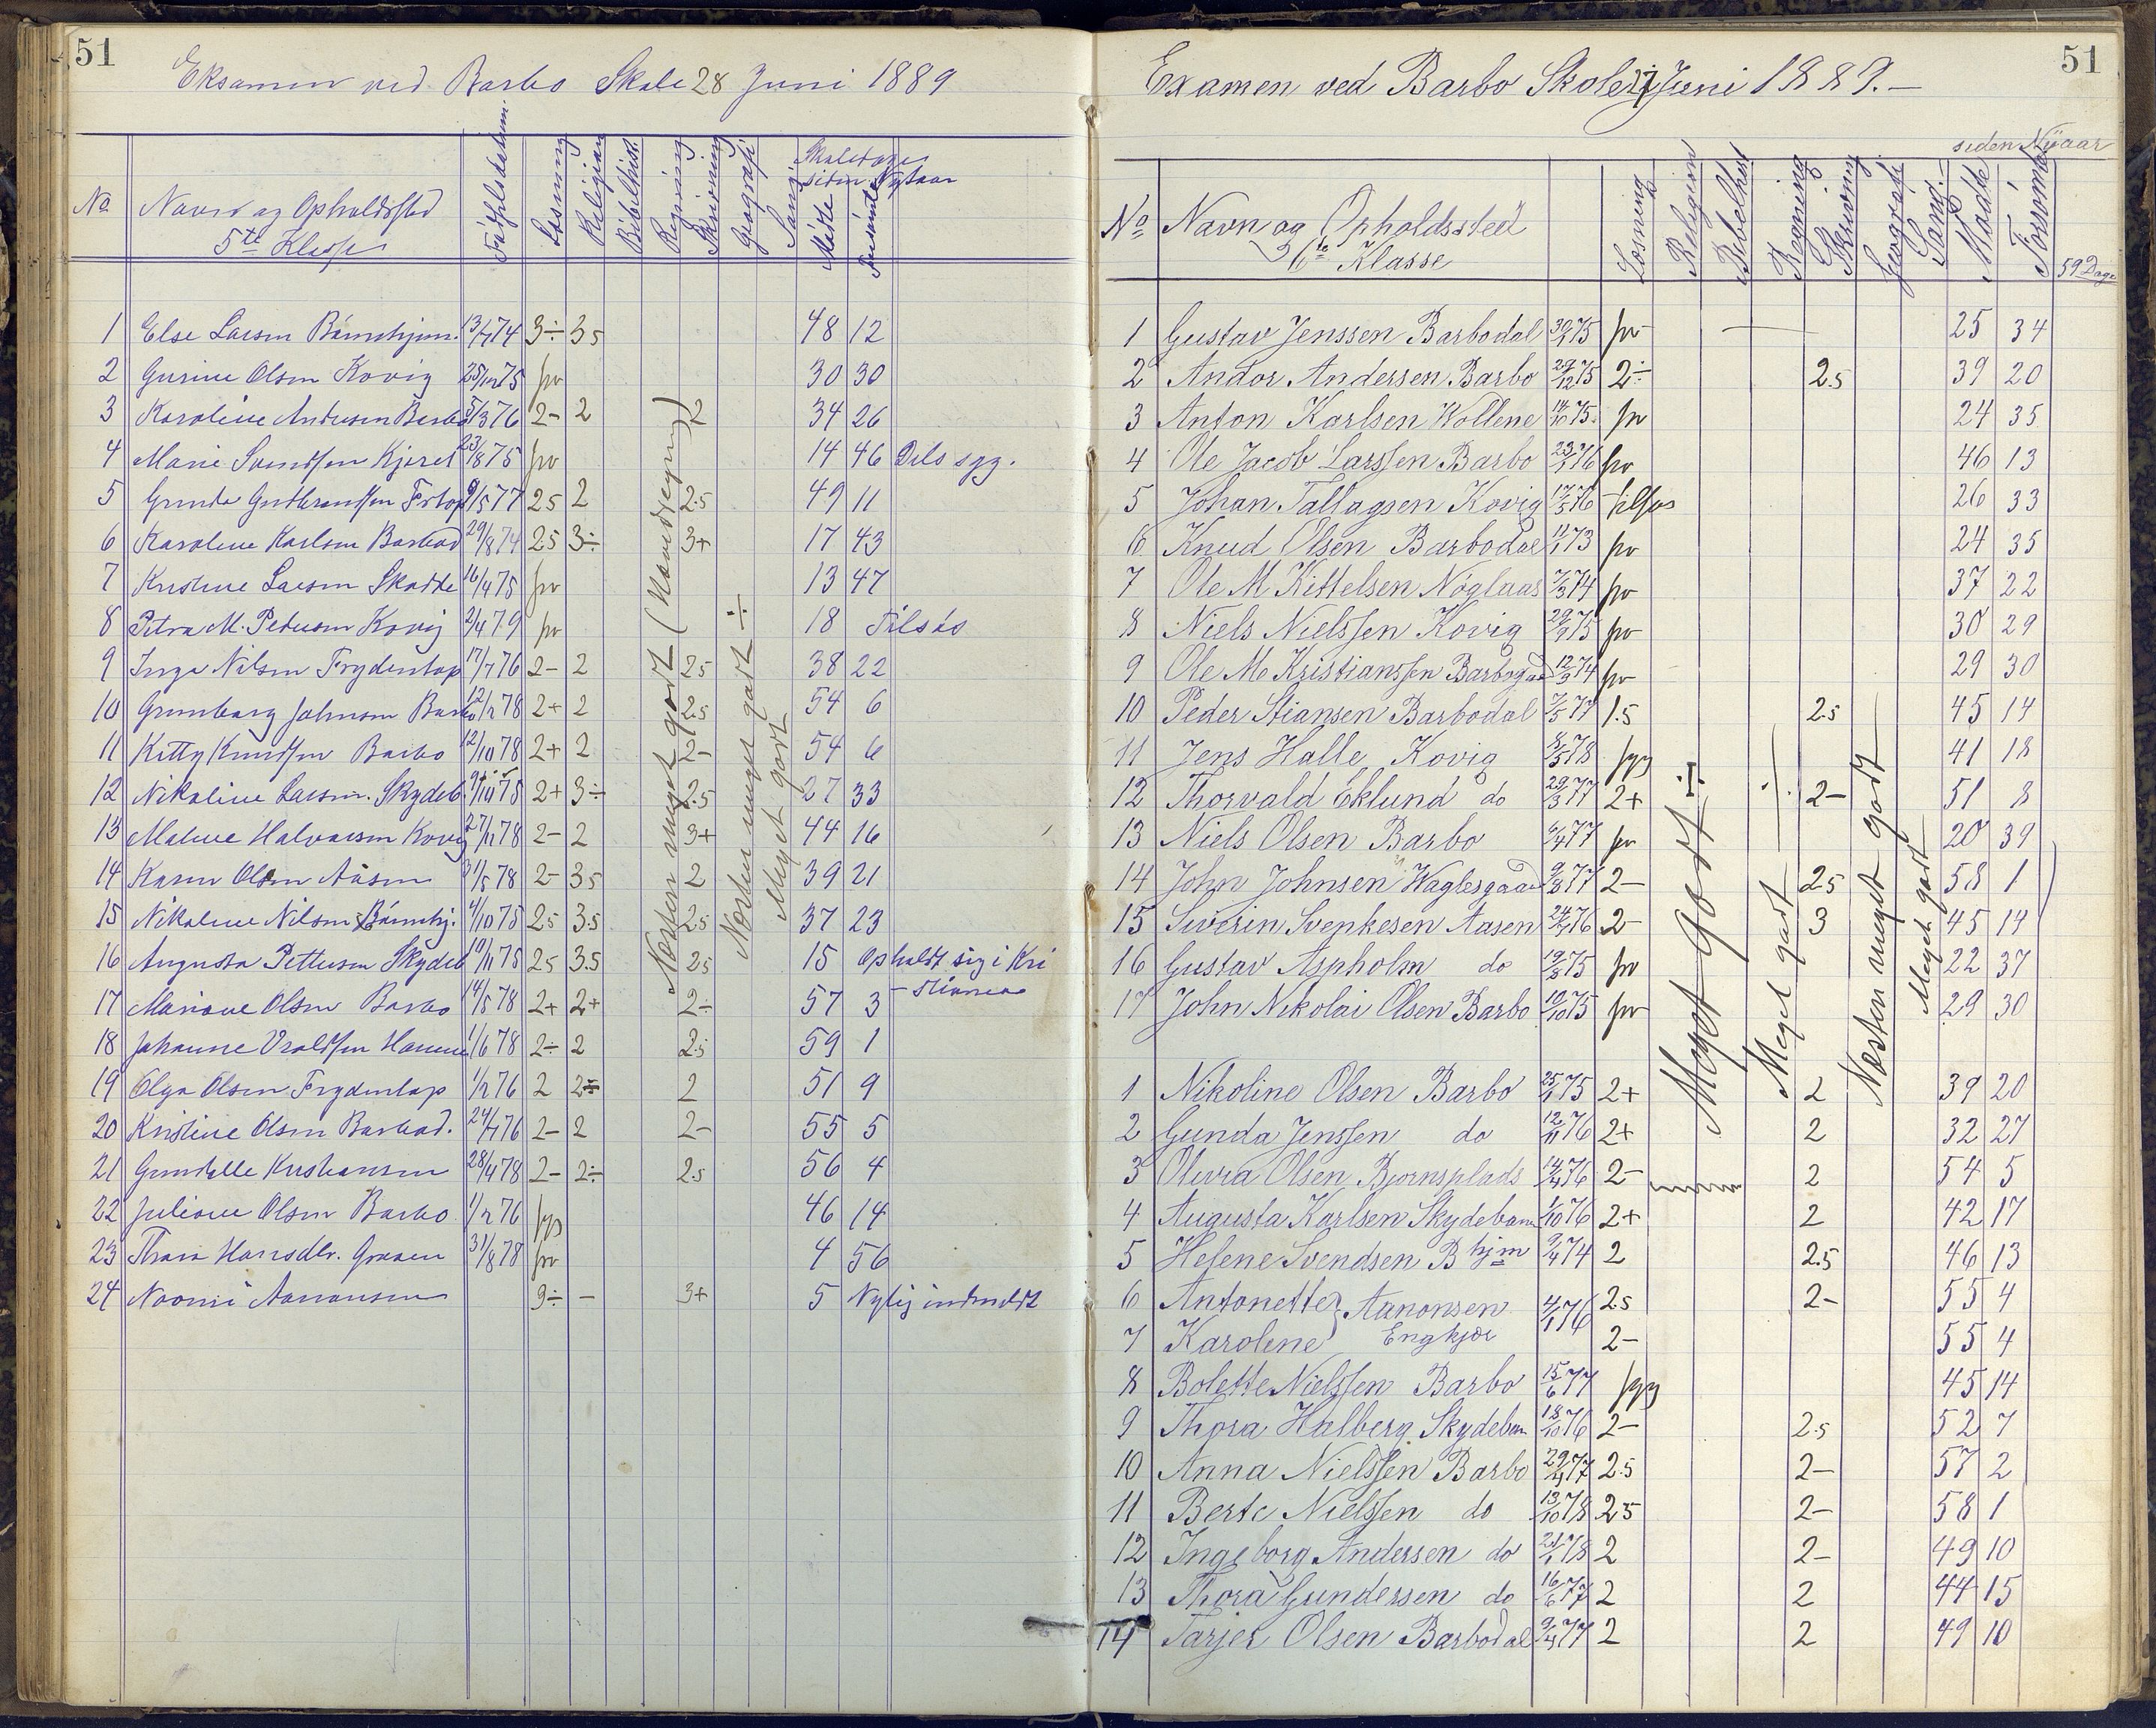 51
Eksamen ved Barbo Skole 28 Juni 1889
Skoledage
siden Nytaar
No Navn og Opholdssted Fødselsdatum Læsning Religion Bibelhist. Regning Skrivning Geografi Sang Mødte Forsømte
5te Klasse
1 Else Larsen Børnehjem. 13/7 74 3÷ 35 48 12
2 Gurine Olsen Kovig 25/12 75 fv 30 30
3 Karoline Andersen Barbo 5/3 76 2- 2 2 34 26
4 Marie Svendsen 23/8 75 fv 14 46 Dels syg.
5 Gunda Gudbrandsen 9/5 77 25 2 2.5 49 11
6 Karoline Karlsen Barbod 29/8 74 25 3÷ 3+ 17 43
7 Kristine Larsen 16/4 75 fv 13 47
8 Petra M. Petersen Kovig 2/4 79 fv 18 Tilsøs
9 Inga Nilsen Frydenlap 17/7 76 2- 2 25 38 22
10 Gunborg Johnsen Barbo 12/2 78 2+ 2 2.5 54 6
11 Kitty Knudsen Barbo 12/10 78 2+ 2 2- 54 6
12 Nikoline Larsen. Skydeb. 9/10 75 2+ 3÷ 2.5 27 33
13 Malene Halvorsen Kovig 27/11 78 2- 2 3+ 44 16
14 Karen Olsen Aasen 31/5 78 2- 35 2 39 21
15 Nikoline Nilsen Børnehj. 4/10 75 25 3.5 25 37 23
16 Augusta Pettersen Skydeb 10/11 75 25 3.5 25 15 Opholdt sig i Kri
- stiania
17 Mariane Olsen Barbo 14/5 78 2+ 2+ 2÷ 57 3
18 Johanne 1/6 78 2÷ 2 2.5 59 1
19 Olga Olsen Frydenlap 1/2 76 2 2÷ 2 51 9
20 Kristine Olsen Barbod. 24/7 76 2- 2 2- 55 5
21 Gundelle Kristiansen 28/4 78 2- 2÷ 2.5 56 4
22 Juliane Olsen Barbo 1/2 76 syg 46 14
23 Thora Hansdtr. 31/8 78 fv 4 56
24 Noomi Aanonsen 3÷ - 3+ 5 Nylig indmeldt
Næsten meget godt (Hovedregning)
Næsten meget godt ÷
Meget godt
51
Examen ved Barbo Skole 27 Juni 1889.-
siden Nÿaar
No Navn og Opholdssted Læsning Religion Bibelhist Regning Skrivning Geografi Sang.- Mødte Forsømte
6te Klasse 59 Dage
1 Gustav Jenssen Barbodal 75 fv 25 34
2 Andor Andersen Barbo 29/12 75 2÷ 2.5 39 20
3 Anton Karlsen Wollene 14/10 75. fv 24 35
4 Ole Jacob Larssen Barbo 76 fv 46 13
5 Johan Tallagsen Kovig 17/5 76 tilsøs 26 33
6 Knud Olsen Barbodal 11/1 73 fv 24 35
7 Ole M Kittelsen Nøglaas 7/3 74 fv 37 22
8 Niels Nielssen Kovig 75 fv 30 29
9 Ole Me Kristianssen Barbogaard 12/9 74 fv 29 30
10 Peder Stiansen Barbodal 7/5 77 1.5 2.5 45 14
11 Jens Halle Kovig 8/5 78 syg 41 18
12 Thorvald Eklund do 29/3 77 2+ 2- 51 8
13 Niels Olsen Barbo 6/4 77 fv 20 39
14 John Johnsen Waglesgaard 9/8 77 2- 25 58 1
15 Siverin Svenkesen Aasen 76 2- 3 45 14
16 Gustav Aspholm do 19/8 75 fv 22 37
17 John Nikolai Olsen Barbo 19/10 75 fv 29 30
1 Nikoline Olsen Barbo 75 2+ 2 39 20
2 Gunda Jenssen do 12/11 76 2+ 2 32 27
3 Olivia Olsen Bjornsplads 14/4 76 2- 2 54 5
4 Augusta Karlsen Skydebane 1/10 76 2+ 2 42 17
5 Helene Svendsen B hjm 9/4 74 2 2.5 46 13
6 Antonette } Aanonsen 4/1 76 2.5 2- 55 4
7 Karolene Engkjær 2- 55 4
8 Bolette Nielssen Barbo 15/6 77 syg 45 14
9 Thora Halberg Skydeban 18/10 76 2- 2.5 52 7
10 Anna Nielssen Barbo 77 2.5 2- 57 2
11 Berte Nielssen do 13/10 78 25 2- 58 1
12 Ingeborg Andersen do 78 2 2- 49 10
13 Thora Gundersen do 16/6 77 2 2 44 15
14 Tarjer Olsen Barbodal 9/4 77 2 2 49 10
Meget godt ÷
Meget godt ÷
Næsten meget godt
Meget godt